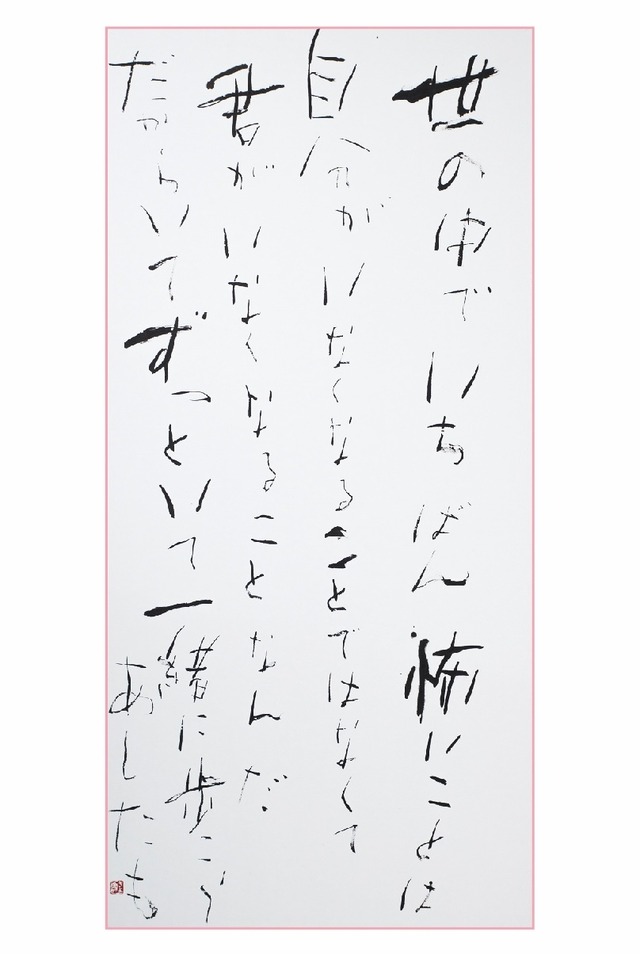 世の中でいちばん怖いことは
自分がいなくなることではなくて
君がいなくなることなんだ
だからいてずっといて一緒に歩こう
あしたも